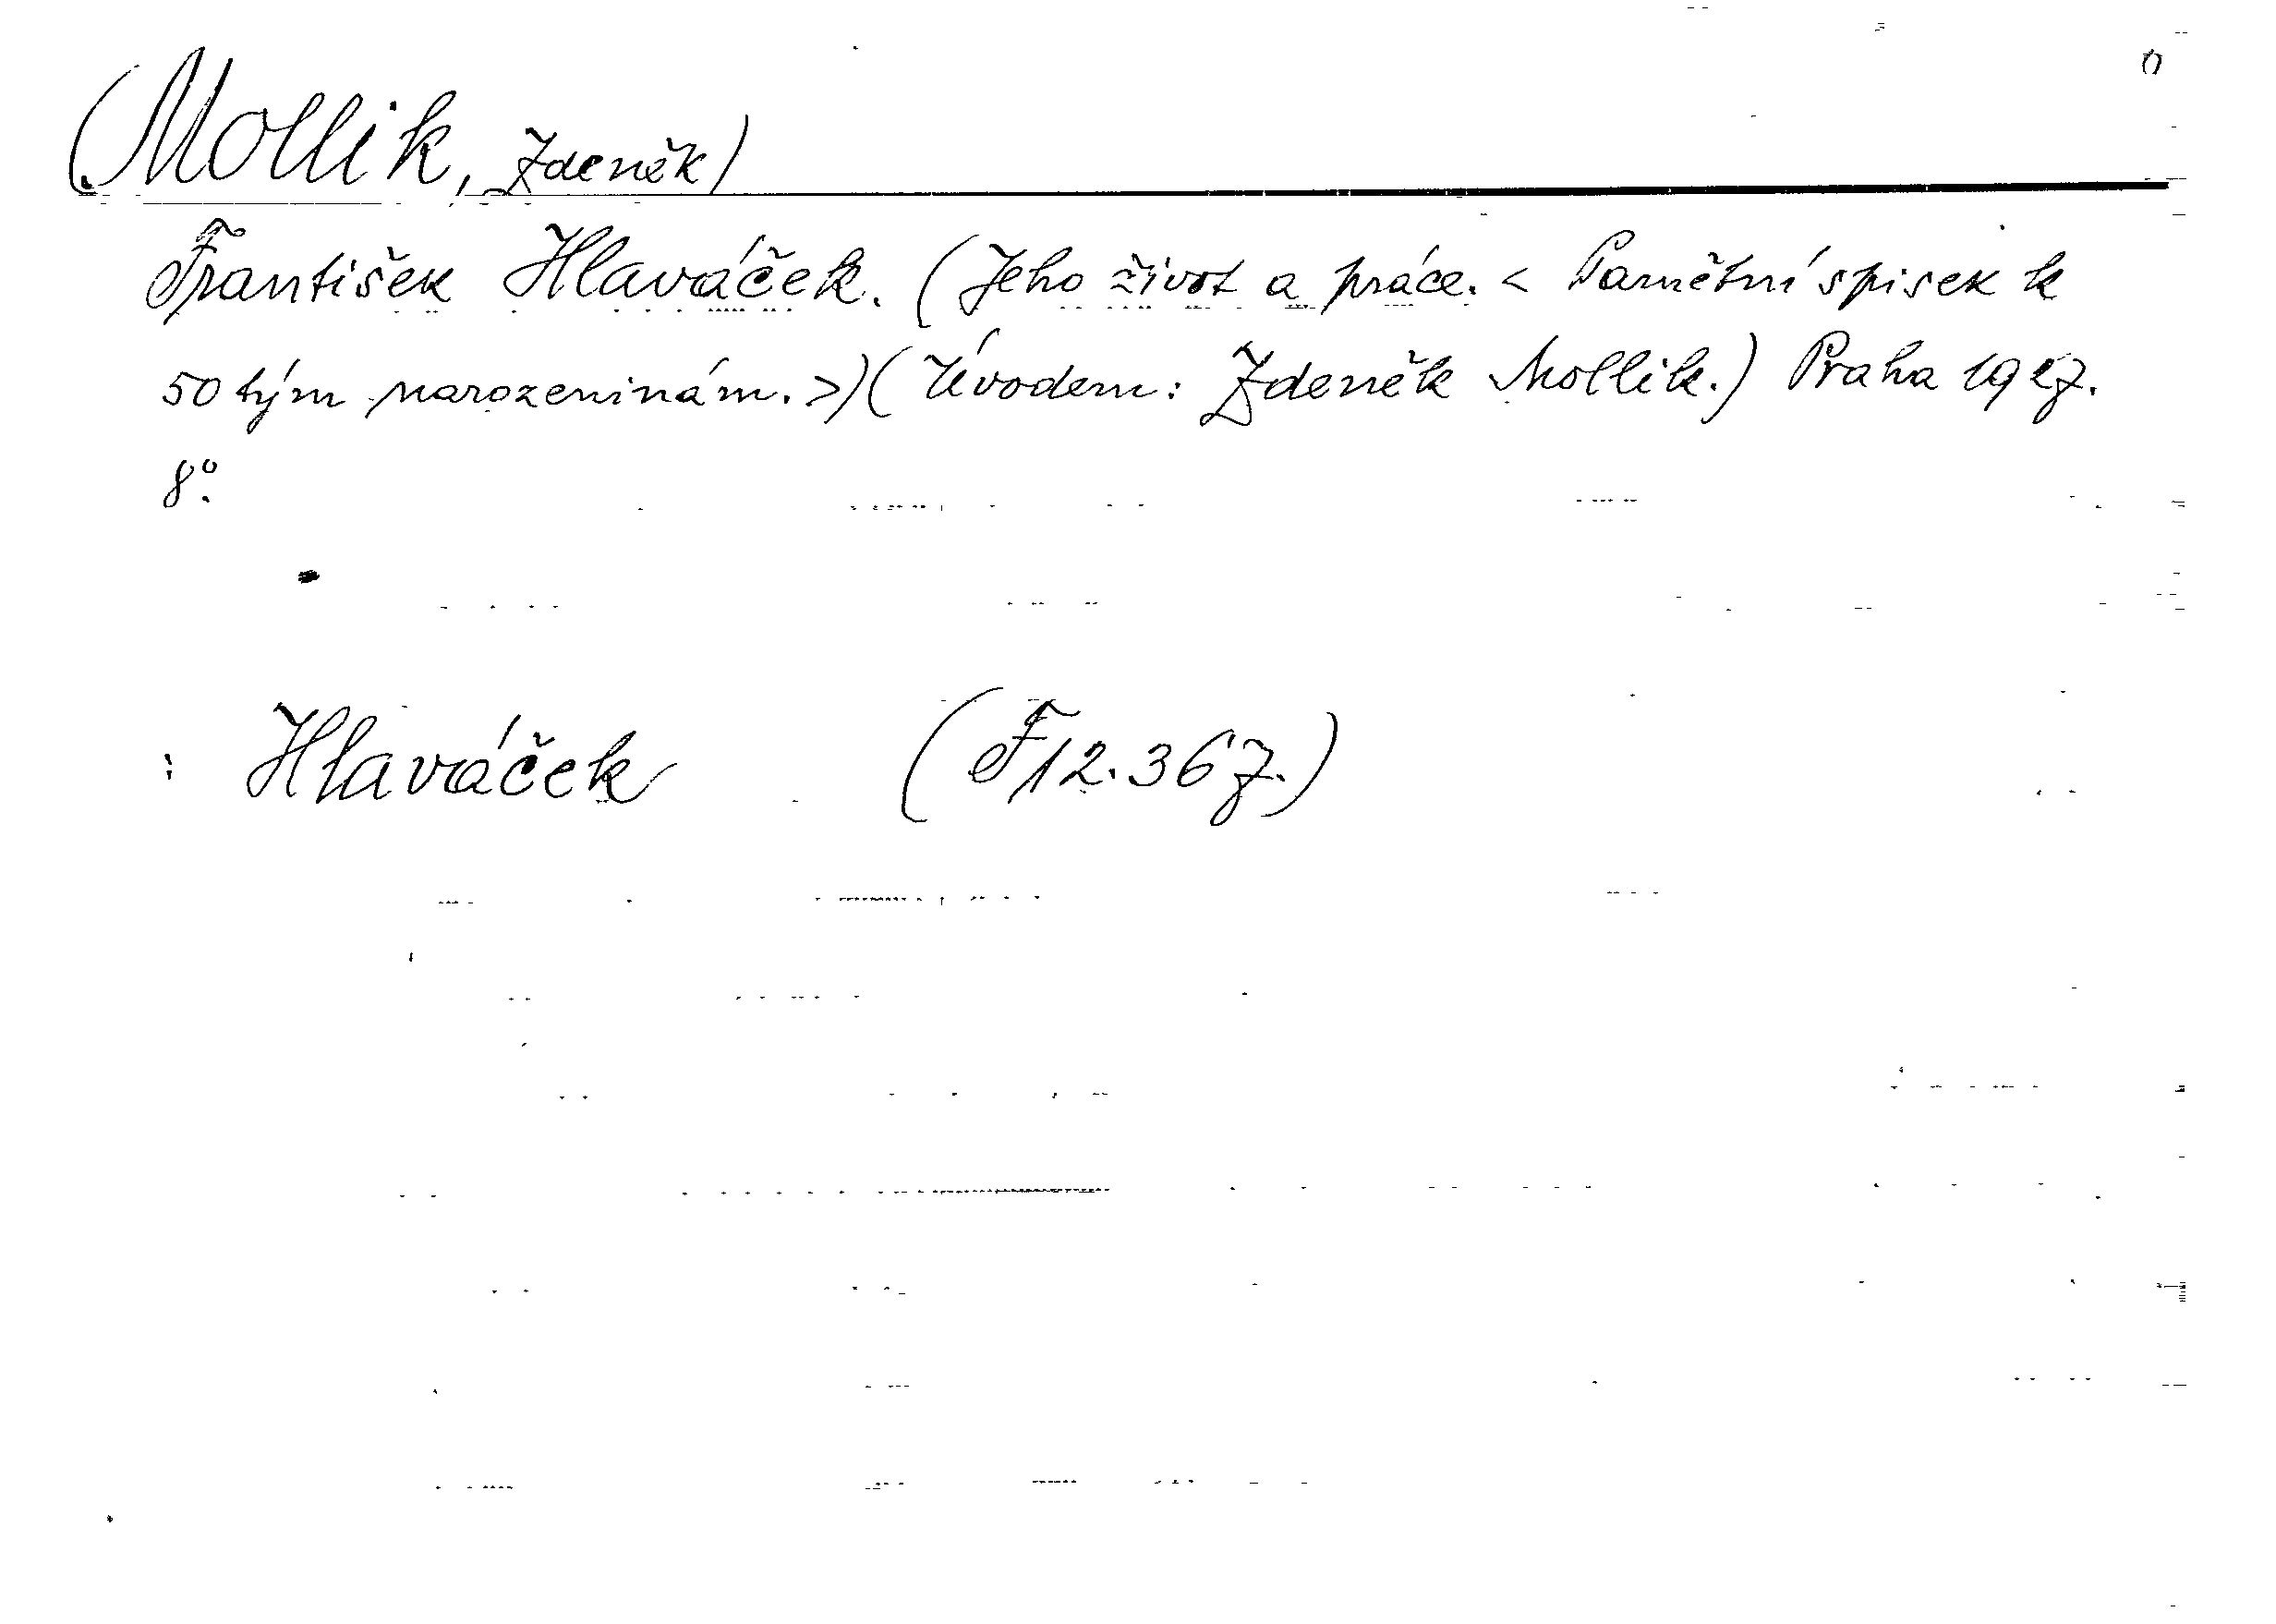 (Mollik, Zdeněk)
František Hlaváček. (Jeho život a práce. < Pamětní spisek k
50tým narozeninám. >) (Úvodem: Zdeněk Mollik.) Praha 1927.
8°.
: Hlaváček (F 12.367.)